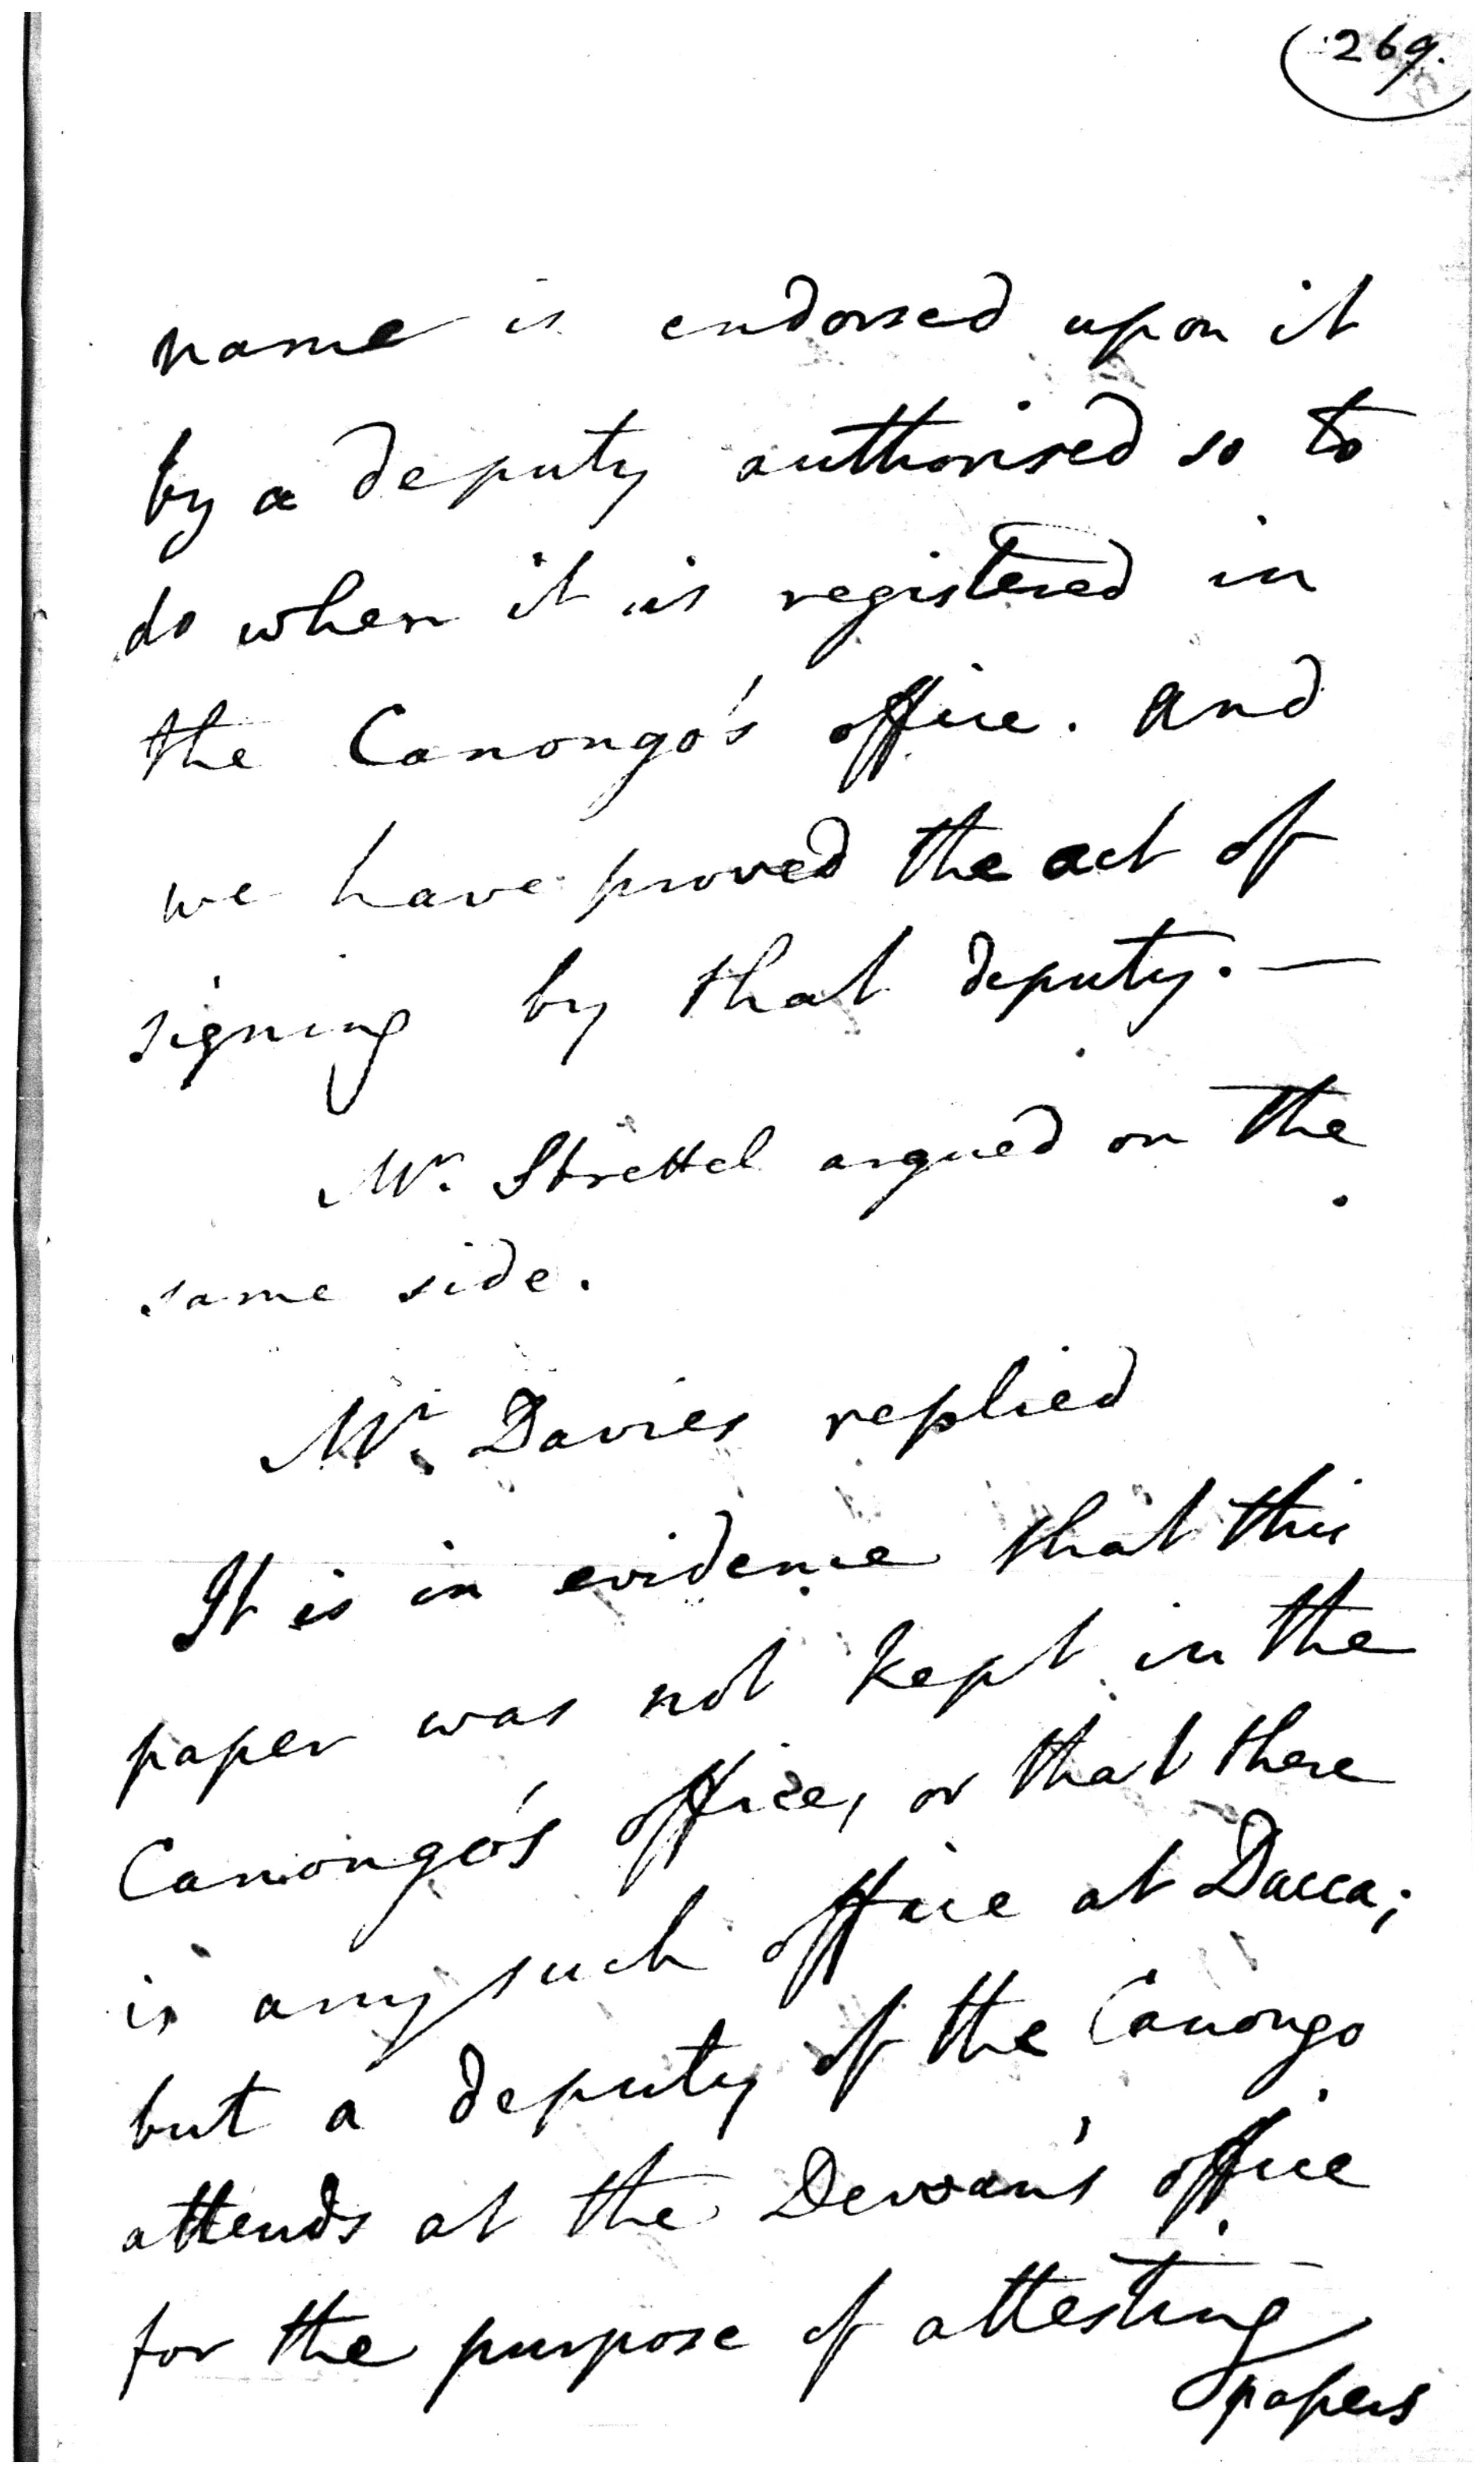 269.
name is endorsed upon it
by a deputy authorised so to
do when it is registered in
the Canongo's office. And
we have proved the act of
signing by that deputy. —
Mr. Strettel argued on the
same side.
Mr. Davies replied
It is in evidence that this
paper was not kept in the
Canongo's office, or that there
is any such office at Dacca;
but a deputy of the Canongo
attends at the Dewan's office
for the purpose of attesting
papers